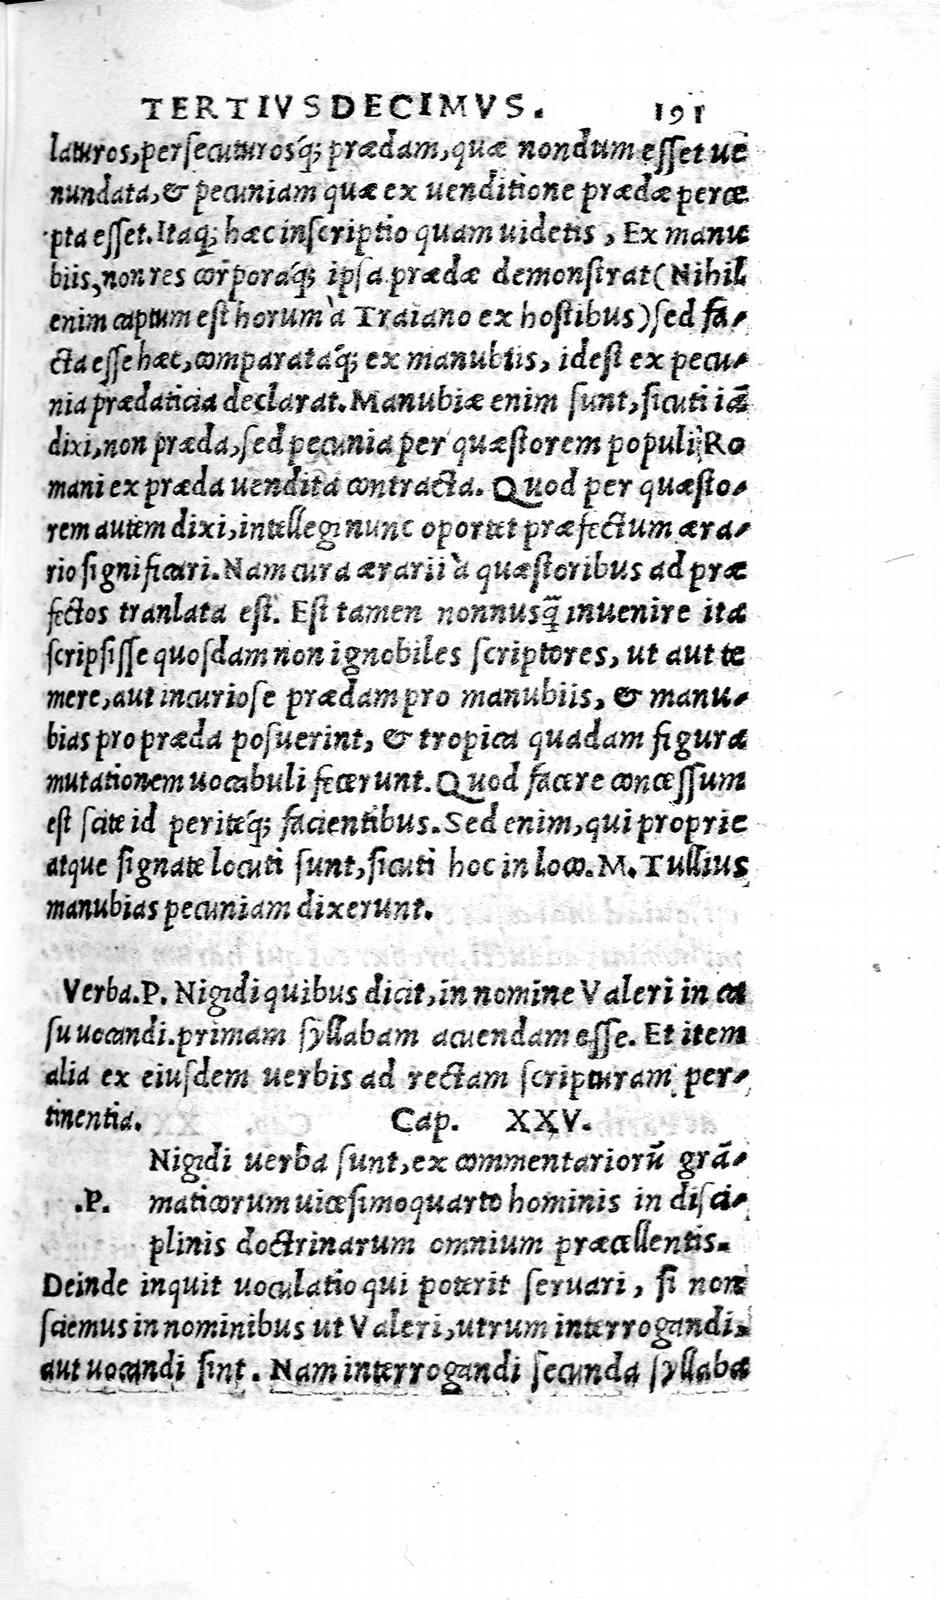 TERTIVSDECIMVS. 191
laturos, persecuturosq́; prædam, quæ nondum esset ue
nundata, & pecuniam quæ ex uenditione prædæ perce
pta esset. Itaq́; hæc inscriptio quam uidetis, Ex manu
biis, non res corporaq́; ipsa prædæ demonstrat (Nihil
enim captum est horum à Traiano ex hostibus) sed fa-
cta esse hæc, comparataq́; ex manubiis, idest ex pecu-
nia prædaticia declarat. Manubiæ enim sunt, sicuti iã
dixi, non præda, sed pecunia per quæstorem populi Ro
mani ex præda uendita contracta. Quod per quæsto-
rem autem dixi, intellegi nunc oportet præfectum æra-
rio significari. Nam cura ærarii à quæstoribus ad præ
fectos tranlata est. Est tamen nonnusq̃ inuenire ita
scripsisse quosdam non ignobiles scriptores, ut aut te
mere, aut incuriose prædam pro manubiis, & manu-
bias pro præda posuerint, & tropica quadam figura
mutationem uocabuli fecerunt. Quod facere concessum
est scite id periteq́; facientibus. Sed enim, qui proprie
atque signate locuti sunt, sicuti hoc in loco. M. Tullius
manubias pecuniam dixerunt.
Verba. P. Nigidi quibus dicit, in nomine Valeri in ca
su uocandi. primam syllabam acuendam esse. Et item
alia ex eiusdem uerbis ad rectam scripturam per-
tinentia. Cap. XXV.
Nigidi uerba sunt, ex commentariorũ grã-
.P. maticorum uicesimo quarto hominis in disci-
plinis doctrinarum omnium præcellentis.
Deinde inquit uoculatio qui poterit seruari, si non
sciemus in nominibus ut Valeri, utrum interrogandi,
aut uocandi sint. Nam interrogandi secunda syllaba